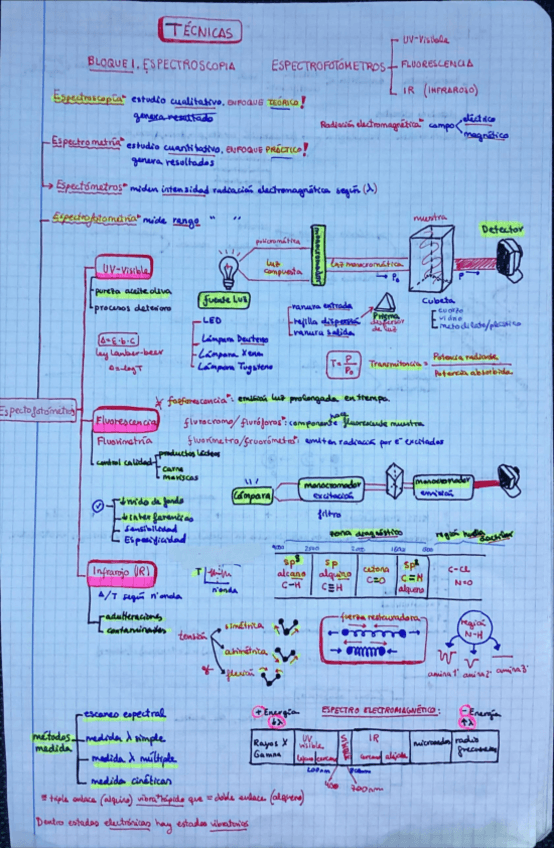 TÉCNICAS
BLOQUE 1. ESPECTROSCOPIA
ESPECTROFOTÓMETROS
UV-Visible
FLUORESCENCIA
IR (INFRAROJO)
Espectroscopía: estudio cualitativo, ENFOQUE TEÓRICO!
genera resultado
Radiación electromagnética: campo
eléctrico
magnético
Espectrometría: estudio cuantitativo, ENFOQUE PRÁCTICO!
genera resultados
Espectómetros: miden intensidad radiación electromagnética según (λ)
Espectrofotometría: mide rango " "
muestra
Detector
policromática
luz compuesta
monocromador
luz monocromática
P₀
P
fuente luz
Cubeta
cuarzo
vidrio
UV-Visible
pureza aceite oliva
procesos deterioro
A=ε·b·c
ley lamber-beer
A=-logT
LED
Lámpara Deuterio
Lámpara Xenon
Lámpara Tugsteno
ranura entrada
rejilla dispersión
ranura salida
Prisma
dispersor de luz
T = P/P₀
Transmitancia =
Potencia radiada
Potencia absorbida
Espectofotómetros
* fosforescencia: emisión luz prolongada en tiempo.
Fluorescencia
Fluorimetría
fluorocromo/fluróforos: componente hace fluorescente muestra
fluorímetro/fluorómetro: emiten radiación por e⁻ excitados
control calidad
productos lácteos
carne
mariscos
↓ ruido de fondo
↓ interferencias
Sensibilidad
Especificidad
lámpara
monocromador excitación
filtro
monocromador emisión
zona diagnóstico
región huella dactilar
4000
2500
2000
sp³
alcano
C-H
sp
alquino
C≡H
cetona
C=O
sp²
C=H
alqueno
C-Cl
N=O
Infrarojo (IR)
A/T según nºonda
T
nºonda
adulteraciones
contaminantes
tensión
simétrica
asimétrica
flexión
fuerza restauradora
región N-H
amina 1ª
amina 2ª
amina 3ª
métodos medida
escaneo espectral
medida λ simple
medida λ múltiple
medida cinéticas
+ Energía
↓λ
ESPECTRO ELECTROMAGNÉTICO:
- Energía
↑λ
Rayos X
Gamma
UV
visible
lejano/cercano
IR
cercano
alejado
microondas
radio frecuencia
400
700nm
* triple enlace (alquino) vibra + rápido que = doble enlace (alqueno)
Dentro estados electrónicos hay estados vibratorios